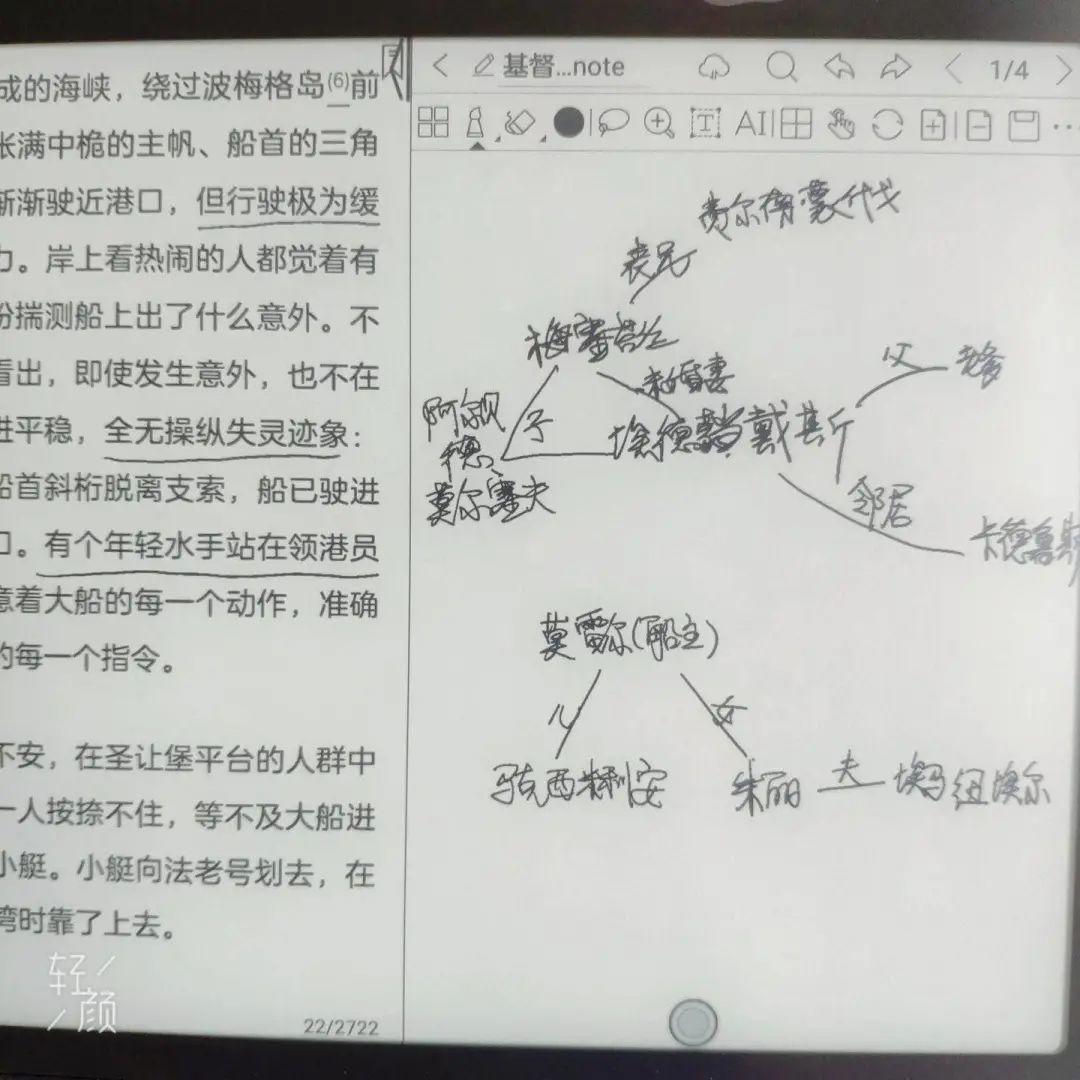 成的海峡，绕过波梅格岛(6)前
张满中桅的主帆、船首的三角
渐渐驶近港口，但行驶极为缓
力。岸上看热闹的人都觉着有
纷揣测船上出了什么意外。不
看出，即使发生意外，也不在
进平稳，全无操纵失灵迹象：
船首斜桁脱离支索，船已驶进
口。有个年轻水手站在领港员
意着大船的每一个动作，准确
的每一个指令。
不安，在圣让堡平台的人群中
一人按捺不住，等不及大船进
小艇。小艇向法老号划去，在
湾时靠了上去。
22/2722
轻颜
基督...note
1/4
T
AI
费尔南·蒙代戈
表兄
梅塞苔丝
未婚妻
父
老爹
阿尔贝
子
埃德蒙·戴斯
德·
莫尔塞夫
邻居
卡德鲁斯
莫雷尔(船主)
儿
女
马克西米利安
朱丽
夫
埃马纽埃尔